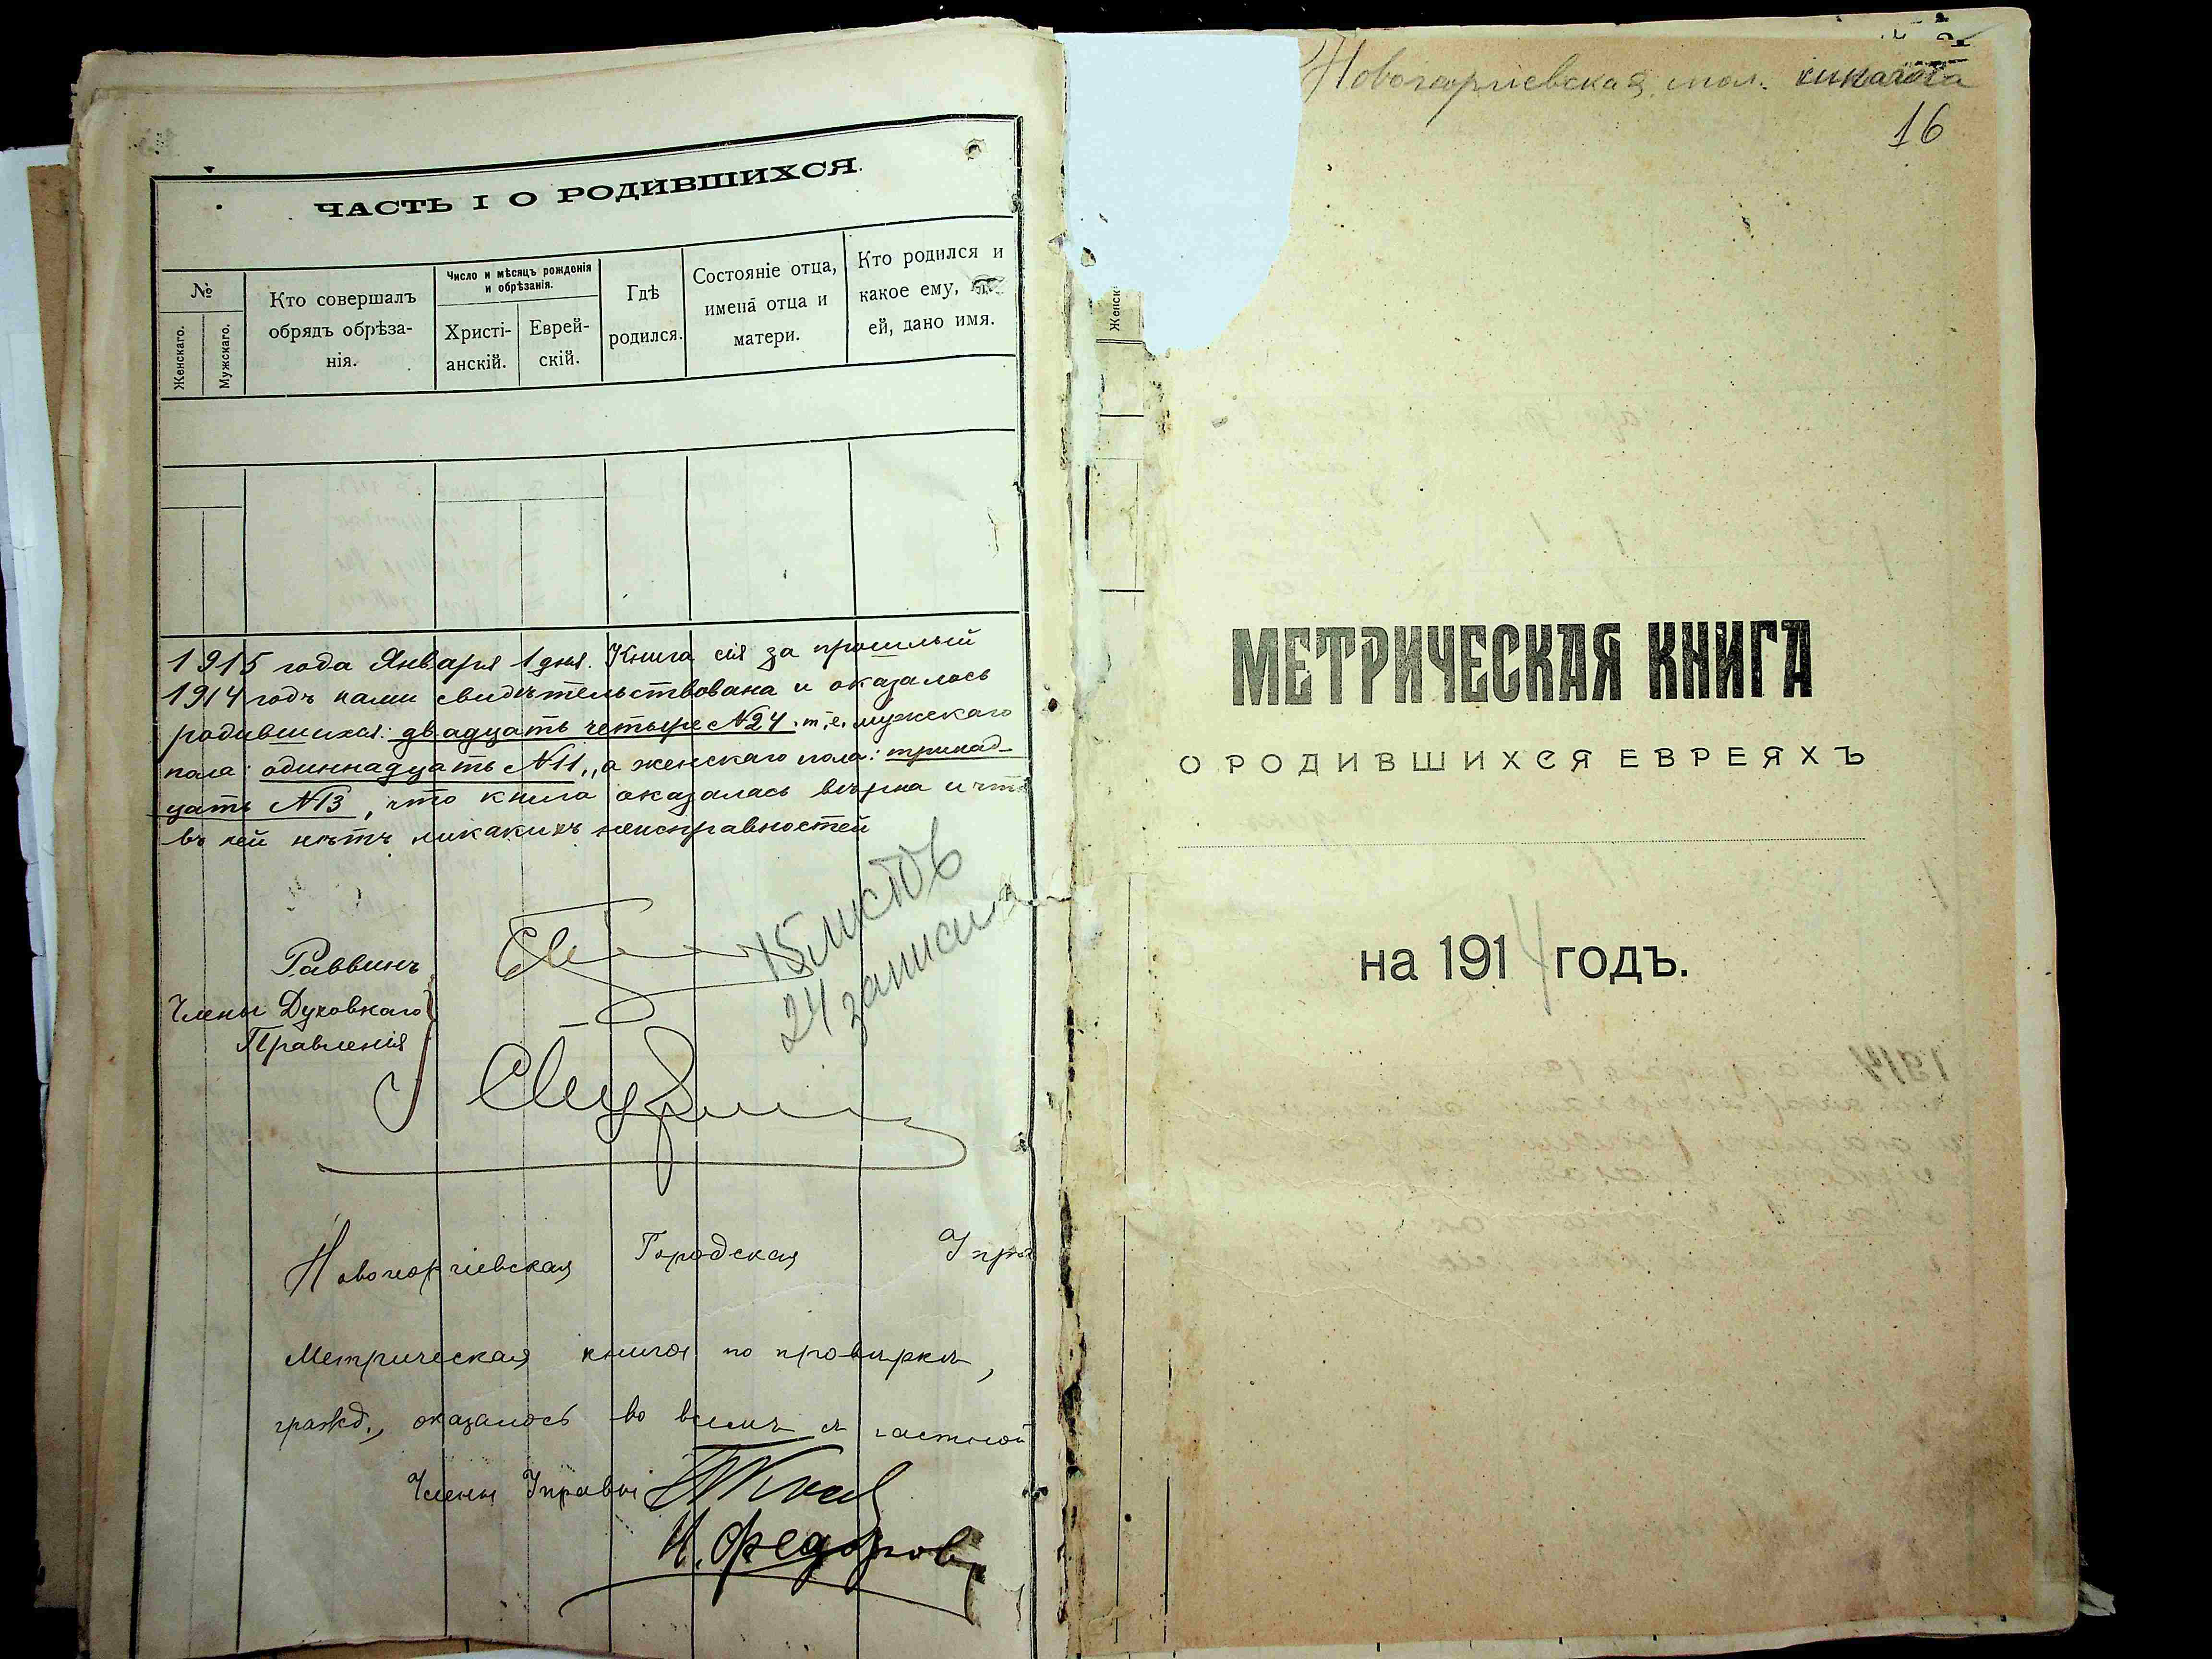 ЧАСТЬ I О РОДИВШИХСЯ.
№
Женскаго.
Мужскаго.
Кто совершалъ
обрядъ обрѣза-
нія.
Число и мѣсяцъ рожденія
и обрѣзанія.
Христі-
анскій.
Еврей-
скій.
Гдѣ
родился.
Состояніе отца,
имена отца и
матери.
Кто родился и
какое ему,
ей, дано имя.
1915 года Января 1 дня. Книга сія за прошлый
1914 годъ нами свидѣтельствована и оказалось
родившихся: двадцать четыре №24. т. е. мужскаго
пола: одиннадцать №11, а женскаго пола: тринад-
цать №13, что книга оказалась вѣрна и что
въ ней нѣтъ никакихъ неисправностей
15 листов
24 записи
Раввинъ
Члены Духовнаго
Правленія
Новогеоргіевская Городская Упра
Метрическая книга по провѣркѣ,
оказалось во всемъ
Члены Управы
И. Федоровъ
Новогеоргиевская мол. синагога
16
Женск
МЕТРИЧЕСКАЯ КНИГА
О РОДИВШИХСЯ ЕВРЕЯХЪ
на 1914 годъ.